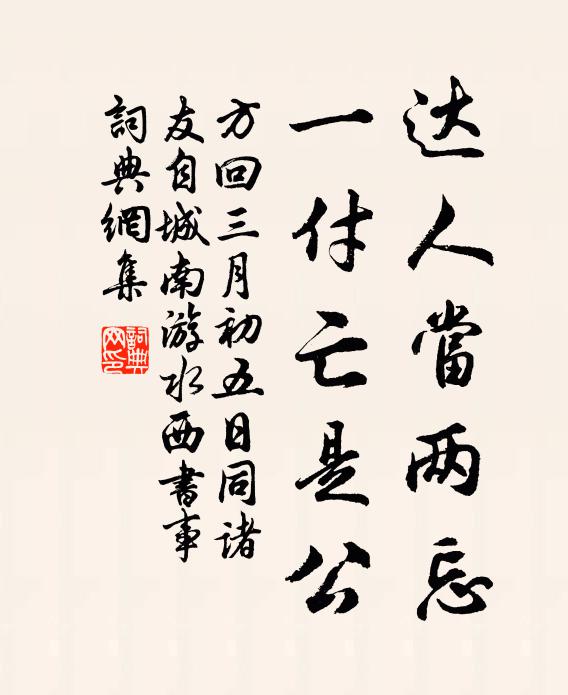 达人當两忘
一付亡是公
方回三月初五日同諸
友自城南游水西書事
詞典網集
詞典网印